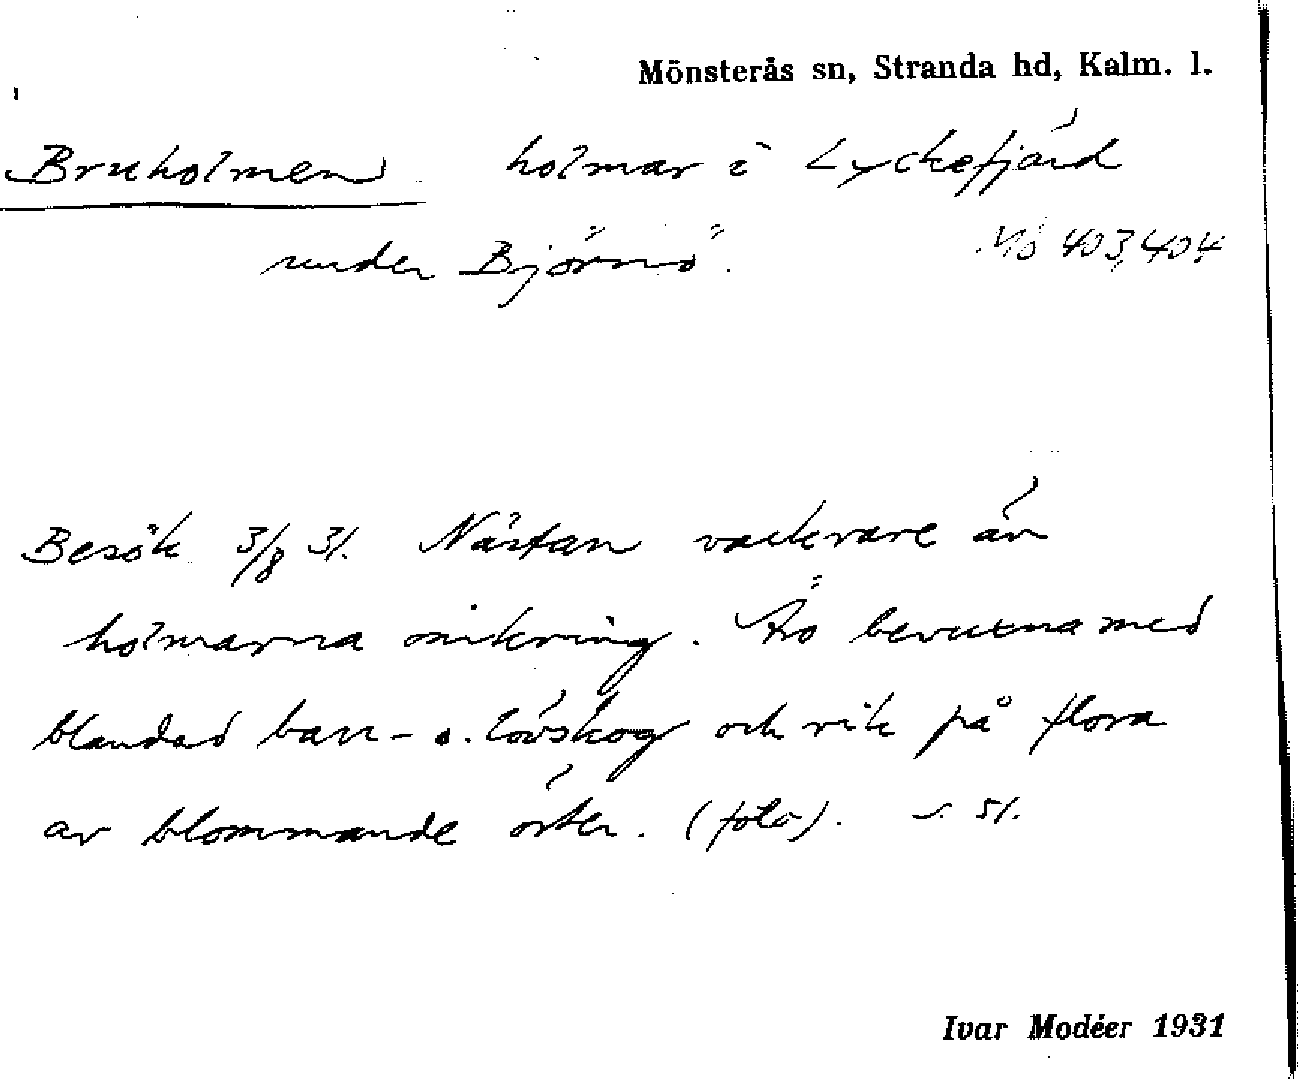 Mönsterås sn, Stranda hd, Kalm. l.
Bruholmen holmar i Lyckefjärd
under Björnö.
Mö 403, 404
Besök 3/8 31. Nästan vackrare än
holmarna omkring. Äro bevuxna med
blandad barr- o. lövskog och rik på flora
av blommande örter. (foto). s. 51.
Ivar Modéer 1931